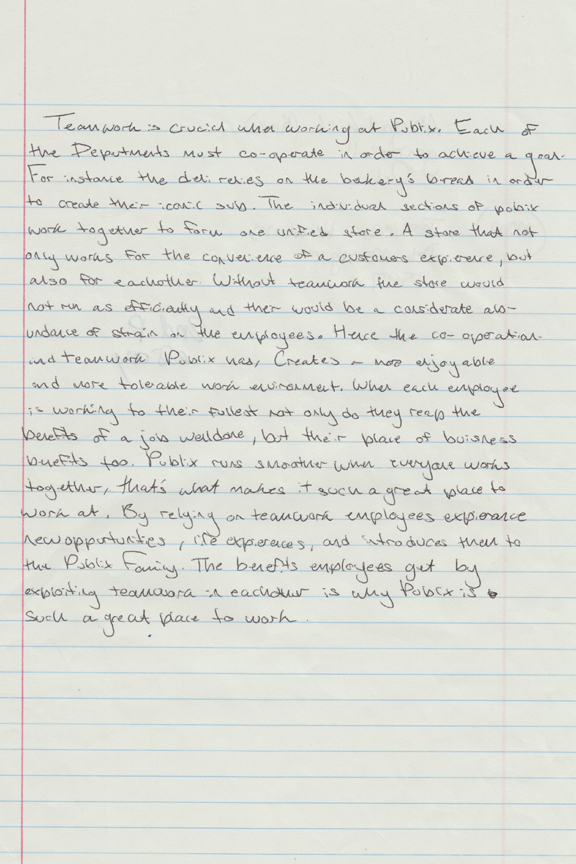 Teamwork is crucial when working at Publix. Each of
the Departments must co-operate in order to achieve a goal.
For instance the deli relies on the bakery's bread in order
to create their iconic sub. The individual sections of publix
work together to form one unified store. A store that not
only works for the convenience of a customers experience, but
also for eachother. Without teamwork the store would
not run as efficiently and ther would be a considerate abu-
ndance of strain on the employees. Hence the co-operation
and teamwork Publix has, Creates a more enjoyable
and more tolerable work environment. When each employee
is working to their fullest not only do they reap the
benefits of a job welldone, but their place of buisness
benefits too. Publix runs smoother when everyone works
together, that's what makes it such a great place to
work at. By relying on teamwork employees experance
new opportunities, life experences, and introduces them to
the Publix Family. The benefits employees get by
exploiting teamwork in eachother is why Publix is
such a great place to work.